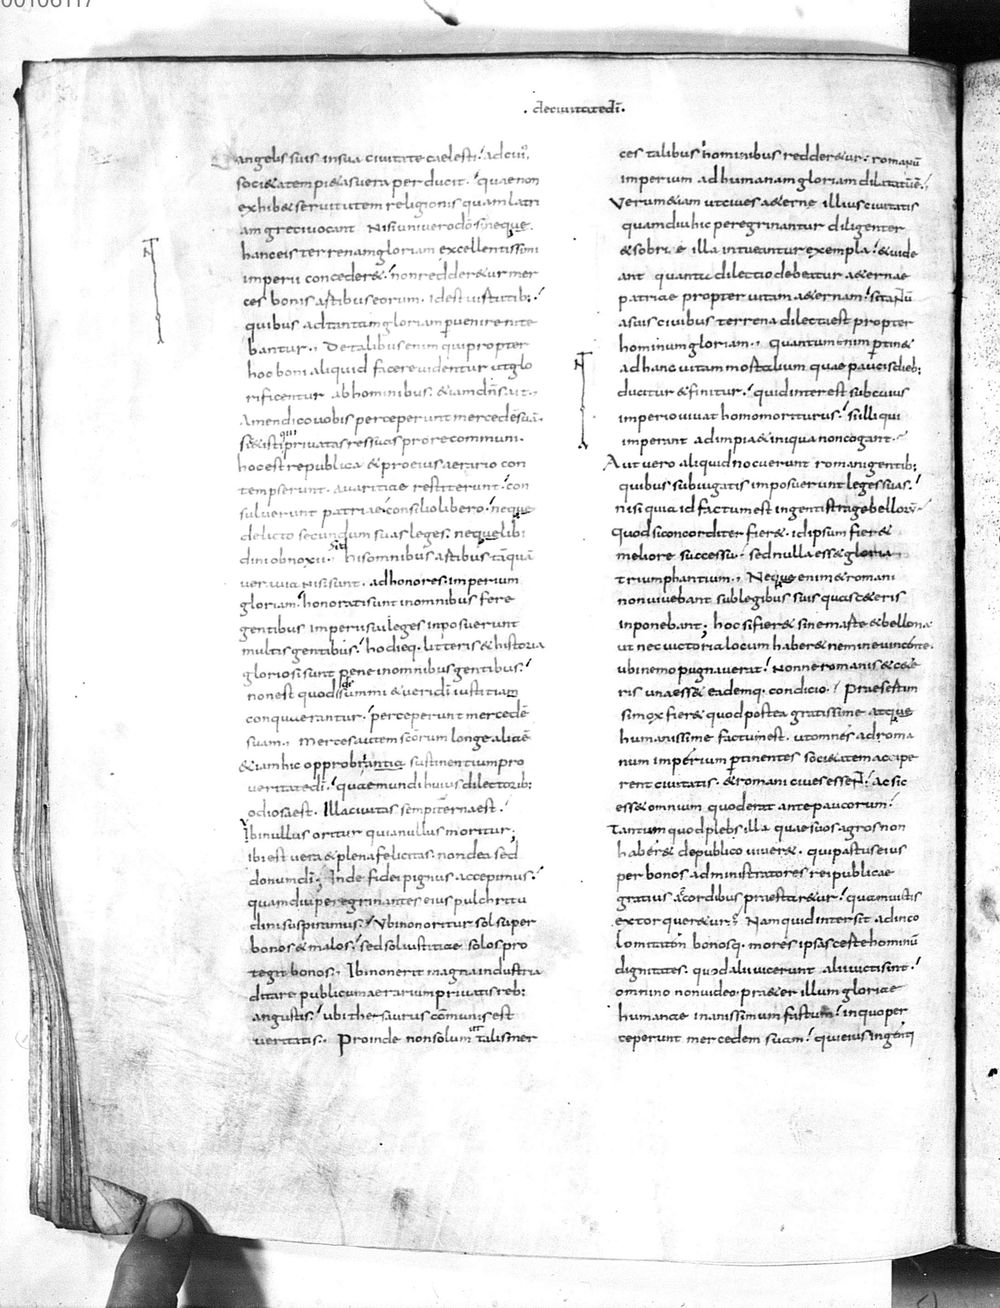 00106117
· deciuitatedī ·
angelis suis insua ciuitate caelesti; adcui',
sociaetatem pietas uera per ducit; quae non
exhibet seruitutem religionis quam latri
am greci uocant nisi uni uero dō si neque.
hanc eis terrenam gloriam excellentissimi
imperii concederet; non redderetur mer
ces bonis artibus eorum. id est uirtutib;
quibus ad tantam gloriam puenire nite
bantur., De talibus enim qui propter
hoc boni aliquid facere uidentur ut glo
rificentur ab hominibus. etiam dn̄s ait.
Amen dico uobis perceperunt mercedē suā.
sic et isti priuatas res suas pro re communi.
hoc est re publica et pro eius aerario con
tempserunt. auaritiae restiterunt. con
suluerunt patriae consilio libero. neque
delicto secundum suas leges. neque libi
dini obnoxii. his omnibus artibus tāquā
uera uia nisi sunt. ad honores. imperium
gloriam. honorati sunt in omnibus fere
gentibus imperii sui leges inposuerunt
multis gentibus. hodieq. litteris et historia
gloriosi sunt pene in omnibus gentibus.
non est quod summi et ueri dī iustitiam
conquerantur. perceperunt mercedē
suam., Merces autem scōrum longe alia ē
etiam hic opprobria sustinentium pro
ueritate dī. quae mundi huius dilectorib;
odiosa est. Illa ciuitas sempiterna est.
Ibi nullus oritur quia nullus moritur;
ibi est uera et plena felicitas. non dea sed
donum dī; Inde fidei pignus accepimus.
quamdiu peregrinantes eius pulchritu
dini suspiramus. Vbi non oritur sol super
bonos et malos. sed sol iustitiae solos pro
tegit bonos., Ibi non erit magna industria
ditare publicum aerarium priuatis reb;
angustis. ubi thesaurus cōmunis est
ueritatis. Proinde non solum ut talis mer
ces talibus hominibus redderetur. romanū
imperium ad humanam gloriam dilatatū ē.
Verum etiam ut ciues aeternae illius ciuitatis
quamdiu hic peregrinantur diligenter
et sobrie illa intueantur exempla. et uide
ant quantu dilectio debeatur aeternae
patriae propter uitam aeternam.
a suis ciuibus terrena dilecta est propter
hominum gloriam., Quantum enim ptinet
ad hanc uitam mortalium quae paucis dieb;
ducitur et finitur. quid interest sub cuius
imperio uiuat homo moriturus. si illi qui
imperant ad impia et iniqua non cogant.
Aut uero aliquid nocuerunt romani gentib;
quibus subiugatis imposuerunt leges suas.
nisi quia id factum est ingenti strage bellorū
Quod si concorditer fieret. id ipsum fieret
meliore successu. sed nulla esset gloria
triumphantium., Neque enim et romani
non uiuebant sub legibus suis quas ceteris
inponebant; hoc si fieret sine marte et bellona
ut nec uictoria locum haberet nemine uincente.
ubi nemo pugnauerat. Nonne romanis et cete
ris una esset eademq. condicio. Praesertim
si mox fieret quod postea gratissime atque
humanissime factum est. ut omnes ad roma
num imperium ptinentes sociaetatem accipe
rent ciuitatis. et romani ciues essent. ac sic
esset omnium quod erat ante paucorum.
Tantum quod plebs illa quae suos agros non
haberet de publico uiueret. qui pastus eius
per bonos administratores rei publicae
gratius a cordibus praestaretur. quam uictis
extorqueretur., Nam quid intersit ad inco
lomitatem bonosq. mores ipsas certe hominū
dignitates. quod alii uicerunt alii uicti sint.
omnino non uideo. praeter illum gloriae
humanae inanissimum fastum. in quo per
ceperunt mercedem suam. qui eius ingenti